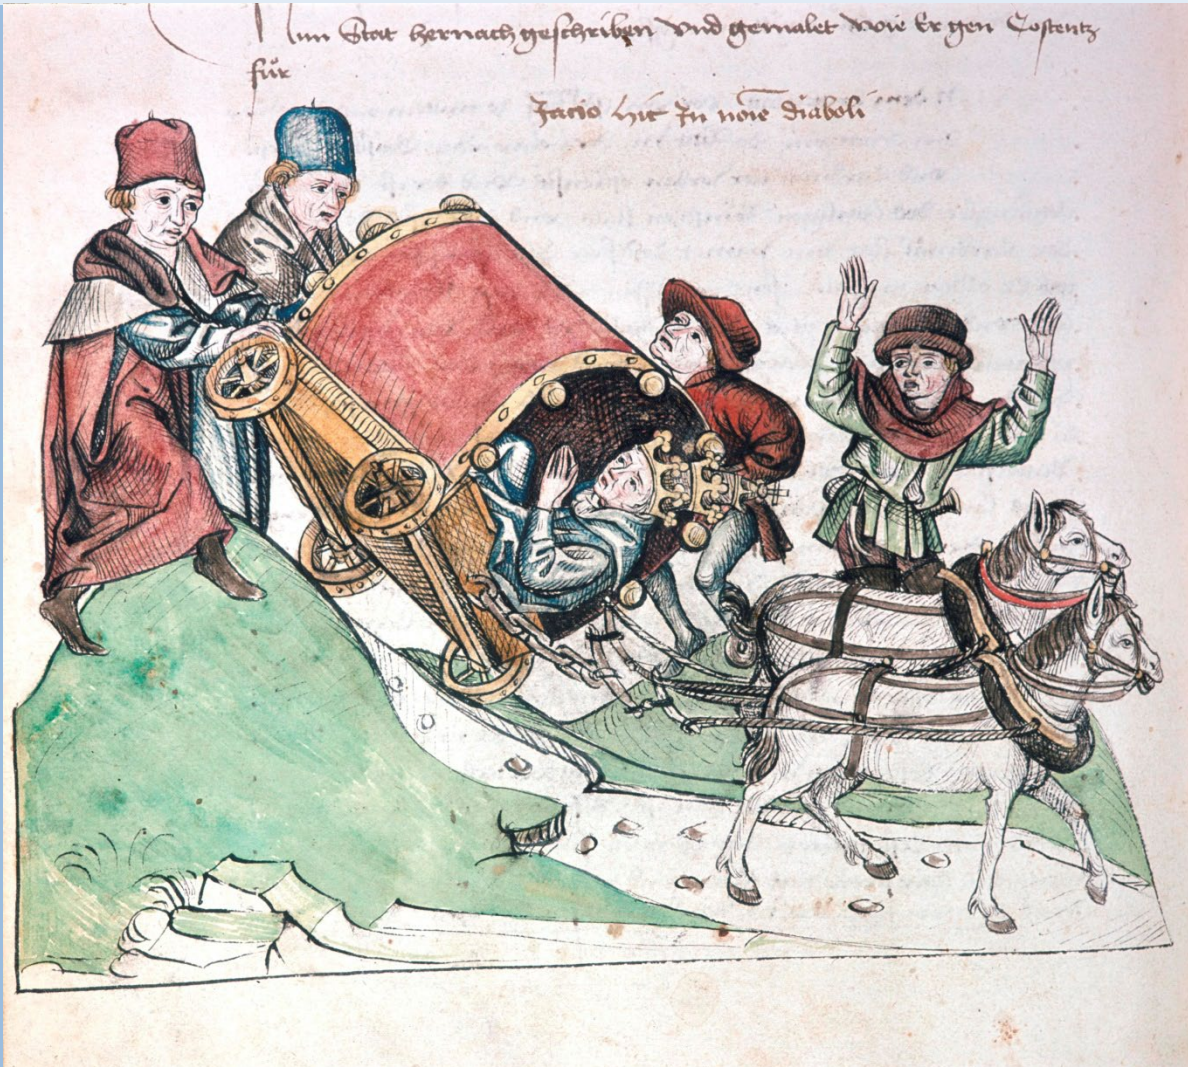 Nun Stat hernach geschriben vnd gemalet wie Er gen Costentz
für
Jaceo hic Jn noīe diaboli